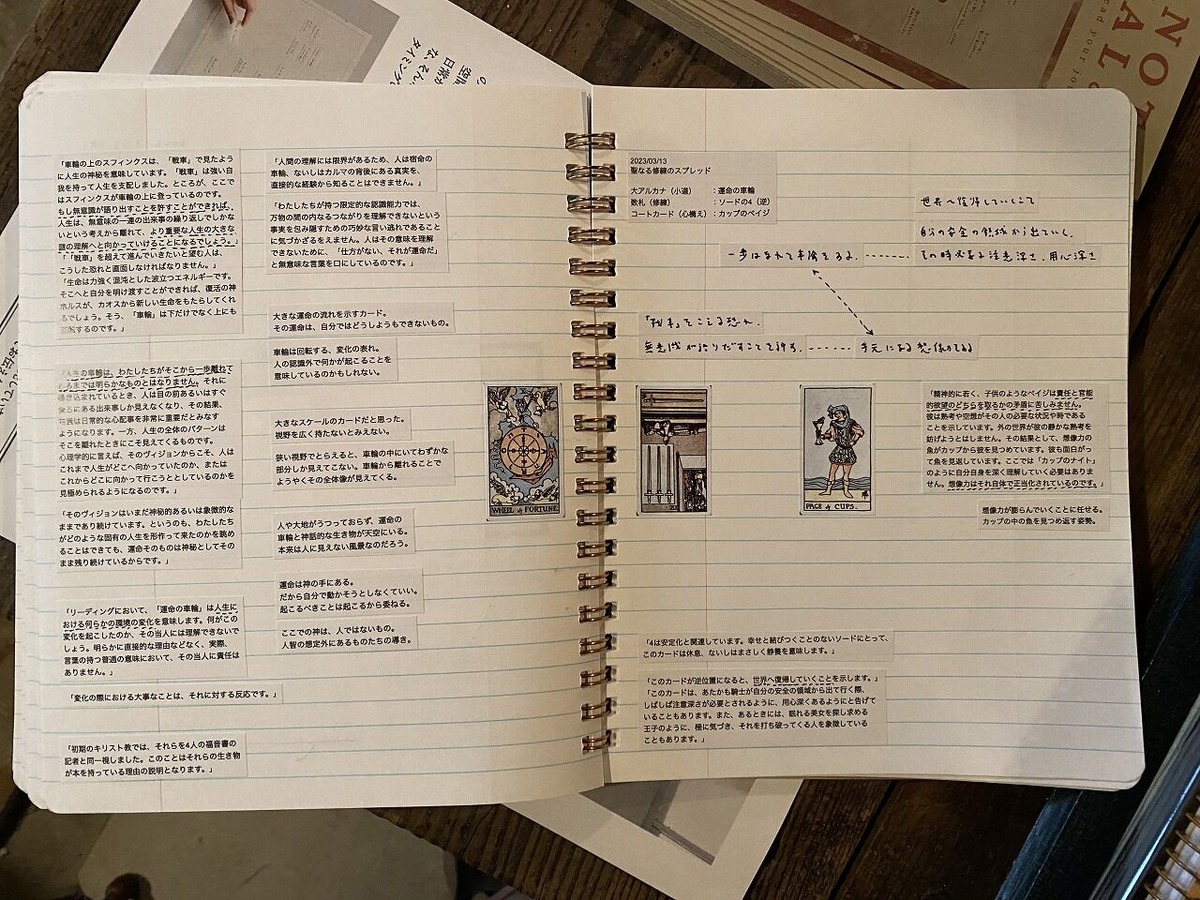 「車輪の上のスフィンクスは、「戦車」で見たよう
に人生の神秘を意味しています。「戦車」は強い自
我を持って人生を支配しました。ところが、ここで
はスフィンクスが車輪の上に登っているのです。
もし無意識が語り出すことを許すことができれば、
人生は、無意味の一連の出来事の繰り返しでしかな
いという考えから離れて、より重要な人生の大きな
謎の理解へと向かっていけることになるでしょう。」
「「戦車」を超えて進んでいきたいと望む人は、
こうした恐れと直面しなければなりません。」
「生命は力強く混沌とした波立つエネルギーです。
そこへと自分を明け渡すことができれば、復活の神
ホルスが、カオスから新しい生命をもたらしてくれ
るでしょう。そう、「車輪」は下だけでなく上にも
回転するのです。」
「人生の車輪は、わたしたちがそこから一歩離れて
みるまでは明らかなものとはなりません。それに
巻き込まれているとき、人は目の前あるいはすぐ
後ろにある出来事しか見えなくなり、その結果、
は日常的な心配事を非常に重要だとみなす
ようになります。一方、人生の全体のパターンは
そこを離れたときにこそ見えてくるものです。
心理学的に言えば、そのヴィジョンからこそ、人は
これまで人生がどこへ向かっていたのか、または
これからどこに向かって行こうととしているのかを
見極められるようになるのです。」
「そのヴィジョンはいまだ神秘的あるいは象徴的な
ままであり続けています。というのも、わたしたち
がどのような固有の人生を形作って来たのかを眺め
ることはできても、運命そのものは神秘としてその
まま残り続けているからです。」
「リーディングにおいて、「運命の車輪」は人生に
おける何らかの環境の変化を意味します。何がこの
変化を起こしたのか、その当人には理解できないで
しょう。明らかに直接的な理由などなく、実際、
言葉の持つ普通の意味において、その当人に責任は
ありません。」
「変化の際における大事なことは、それに対する反応です。」
「初期のキリスト教では、それらを4人の福音書の
記者と同一視しました。このことはそれらの生き物
が本を持っている理由の説明となります。」
「人間の理解には限界があるため、人は宿命の
車輪、ないしはカルマの背後にある真実を、
直接的な経験から知ることはできません。」
「わたしたちが持つ限定的な認識能力では、
万物の間の内なるつながりを理解できないという
事実を包み隠すための巧妙な言い逃れであること
に気づかざるをえません。人はその意味を理解
できないために、「仕方がない、それが運命だ」
と無意味な言葉を口にしているのです。」
大きな運命の流れを示すカード。
その運命は、自分ではどうしようもできないもの。
車輪は回転する、変化の表れ。
人の認識外で何かが起こることを
意味しているのかもしれない。
大きなスケールのカードだと思った。
視野を広く持たないとみえない。
狭い視野でとらえると、車輪の中にいてわずかな
部分しか見えてこない。車輪から離れることで
ようやくその全体像が見えてくる。
人や大地がうつっておらず、運命の
車輪と神話的な生き物が天空にいる。
本来は人に見えない風景なのだろう。
運命は神の手にある。
だから自分で動かそうとしなくていい。
起こるべきことは起こるから委ねる。
ここでの神は、人ではないもの。
人智の想定外にあるものたちの導き。
WHEEL of FORTUNE
2023/03/13
聖なる修練のスプレッド
大アルカナ（小道）：運命の車輪
数札（修練）：ソードの4（逆）
コートカード（心構え）：カップのペイジ
世界へ復帰していくこと
自分の安全の領域から出ていく。
一歩はなれて車輪をみる。……… その時必要な注意深さ、用心深さ
「戦車」をこえる恐れ。
無意識が語りだすことを許す。……… 手元にある想像のてる
PAGE of CUPS.
「精神的に若く、子供のようなペイジは責任と官能
的欲望のどちらを取るかの矛盾に苦しみません。
彼は熟考や空想がその人の必要な状況や時である
ことを示しています。外の世界が彼の静かな熟考を
妨げようとはしません。その結果として、想像力の
魚がカップから彼を見つめています。彼も面白がっ
て魚を見返しています。ここでは「カップのナイト」
のように自分自身を深く理解していく必要はありま
せん。想像力はそれ自体で正当化されているのです。」
想像力が膨らんでいくことに任せる。
カップの中の魚を見つめ返す姿勢。
「4は安定化と関連しています。幸せと結びつくことのないソードにとって、
このカードは休息、ないしはまさしく静養を意味します。」
「このカードが逆位置になると、世界へ復帰していくことを示します。」
「このカードは、あたかも騎士が自分の安全の領域から出て行く際、
しばしば注意深さが必要とされるように、用心深くあるようにと告げて
いることもあります。また、あるときには、眠れる美女を探し求める
王子のように、棺に気づき、それを打ち破ってくる人を象徴している
こともあります。」